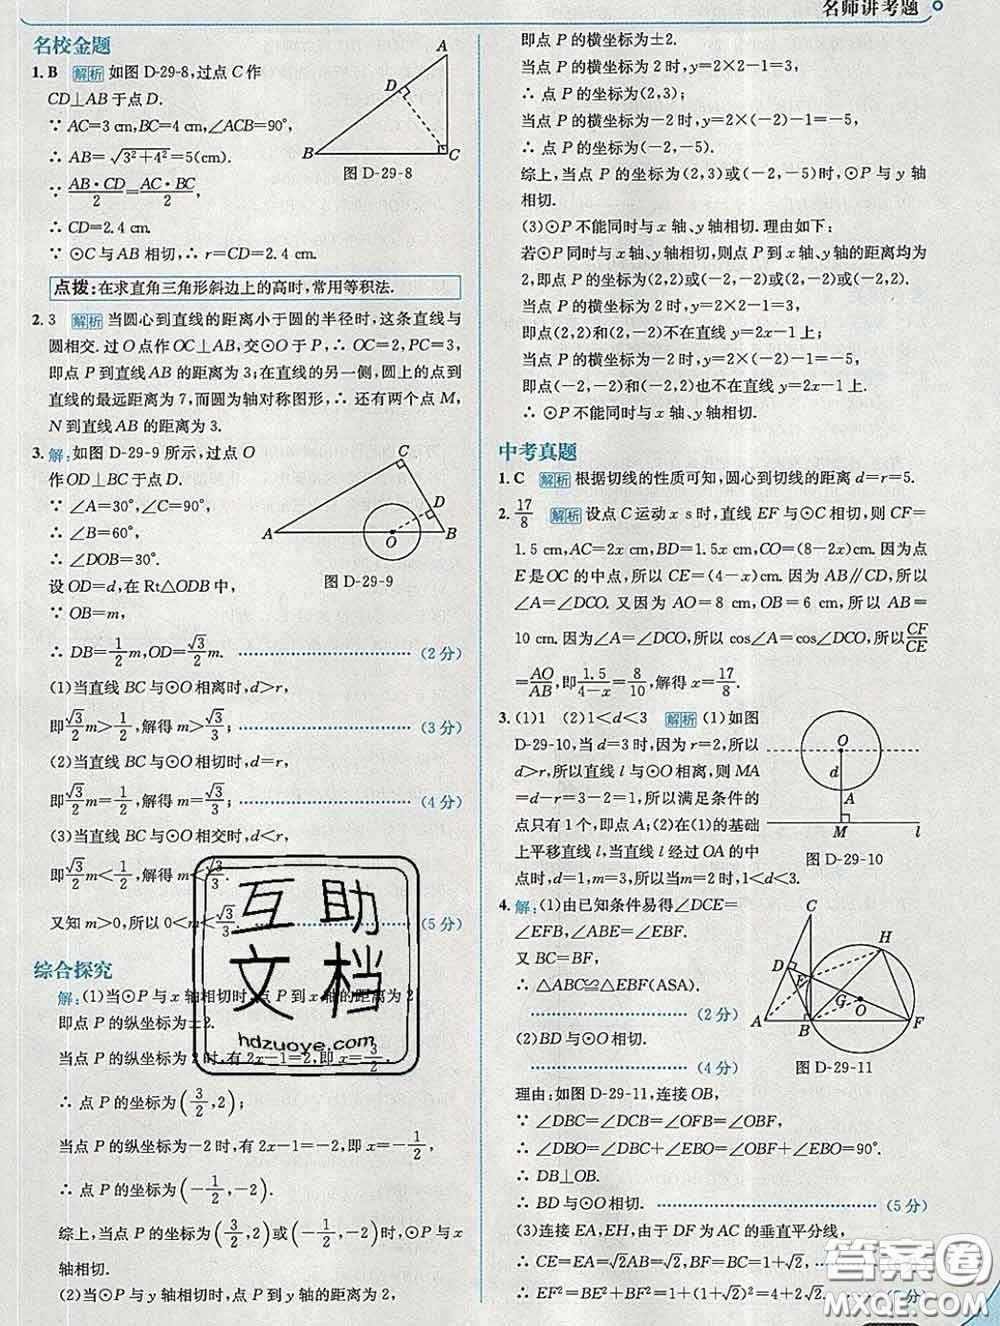 名师讲考题
名校金题
1. B 解析 如图 D-29-8,过点 C 作
CD⊥AB 于点 D.
∵ AC=3 cm,BC=4 cm,∠ACB=90°,
∴ AB=√(3²+4²)=5(cm).
∵ AB·CD/2=AC·BC/2,
∴ CD=2.4 cm.
∵ ⊙C 与 AB 相切,∴ r=CD=2.4 cm.
A
D
B
C
图 D-29-8
点拨:在求直角三角形斜边上的高时,常用等积法.
2. 3 解析 当圆心到直线的距离小于圆的半径时,这条直线与
圆相交.过 O 点作 OC⊥AB,交⊙O 于 P,∴ OC=2,PC=3,
即点 P 到直线 AB 的距离为 3;在直线的另一侧,圆上的点到
直线的最远距离为 7,而圆为轴对称图形,∴ 还有两个点 M,
N 到直线 AB 的距离为 3.
3. 解:如图 D-29-9 所示,过点 O
作 OD⊥BC 于点 D.
∵ ∠A=30°,∠C=90°,
∴ ∠B=60°,
∴ ∠DOB=30°.
设 OD=d,在 Rt△ODB 中,
∵ OB=m,
∴ DB=1/2 m,OD=√3/2 m. (2 分)
C
D
A
O
B
图 D-29-9
(1)当直线 BC 与⊙O 相离时,d>r,
即√3/2 m>1/2,解得 m>√3/3; (3 分)
(2)当直线 BC 与⊙O 相切时,d=r,
即√3/2 m=1/2,解得 m=√3/3; (4 分)
(3)当直线 BC 与⊙O 相交时,d<r,
即√3/2 m<1/2,解得 m<√3/3,
又知 m>0,所以 0<m<√3/3. (5 分)
综合探究
解:(1)当⊙P 与 x 轴相切时,点 P 到 x 轴的距离为 2,
即点 P 的纵坐标为±2.
当点 P 的纵坐标为 2 时,有 2x-1=2,即 x=3/2,
∴ 点 P 的坐标为(3/2,2);
当点 P 的纵坐标为-2 时,有 2x-1=-2,即 x=-1/2,
∴ 点 P 的坐标为(-1/2,-2).
综上,当点 P 的坐标为(3/2,2)或(-1/2,-2)时,⊙P 与 x
轴相切.
(2)当⊙P 与 y 轴相切时,点 P 到 y 轴的距离为 2,
互助
文档
hdzuoye.com
即点 P 的横坐标为±2.
当点 P 的横坐标为 2 时,y=2×2-1=3,
∴ 点 P 的坐标为(2,3);
当点 P 的横坐标为-2 时,y=2×(-2)-1=-5,
∴ 点 P 的坐标为(-2,-5).
综上,当点 P 的坐标为(2,3)或(-2,-5)时,⊙P 与 y 轴
相切.
(3)⊙P 不能同时与 x 轴、y 轴相切.理由如下:
若⊙P 同时与 x 轴、y 轴相切,则点 P 到 x 轴、y 轴的距离均为
2,即点 P 的坐标为(2,2)或(-2,-2)或(2,-2)或(-2,2).
当点 P 的横坐标为 2 时,y=2×2-1=3,
即点(2,2)和(2,-2)不在直线 y=2x-1 上;
当点 P 的横坐标为-2 时,y=2×(-2)-1=-5,
即点(-2,-2)和(-2,2)也不在直线 y=2x-1 上.
∴ ⊙P 不能同时与 x 轴、y 轴相切.
中考真题
1. C 解析 根据切线的性质可知,圆心到切线的距离 d=r=5.
2. 17/8 解析 设点 C 运动 x s 时,直线 EF 与⊙C 相切,则 CF=
1.5 cm,AC=2x cm,BD=1.5x cm,CO=(8-2x)cm.因为点
E 是 OC 的中点,所以 CE=(4-x)cm.因为 AB∥CD,所以
∠A=∠DCO.又因为 AO=8 cm,OB=6 cm,所以 AB=
10 cm.因为∠A=∠DCO,所以 cos∠A=cos∠DCO,所以CF/CE
=AO/AB,即1.5/(4-x)=8/10,解得 x=17/8.
3. (1)1 (2)1<d<3 解析 (1)如图
D-29-10,当 d=3 时,因为 r=2,所以
d>r,所以直线 l 与⊙O 相离,则 MA
=d-r=3-2=1,所以满足条件的
点只有 1 个,即点 A;(2)在(1)的基础
上平移直线 l,当直线 l 经过 OA 的中
点时,d=1,m=3;当 d=3 时,m=1.所以当 m=2 时,1<d<3.
O
d
A
M
l
图 D-29-10
4. 解:(1)由已知条件易得∠DCE=
∠EFB,∠ABE=∠EBF.
又 BC=BF,
∴ △ABC≌△EBF(ASA).
(2 分)
(2)BD 与⊙O 相切.
(4 分)
C
H
D
E
G
O
A
B
F
图 D-29-11
理由:如图 D-29-11,连接 OB,
∵ ∠DBC=∠DCB=∠OFB=∠OBF,
∴ ∠DBO=∠DBC+∠EBO=∠OBF+∠EBO=90°.
∴ DB⊥OB.
∴ BD 与⊙O 相切. (5 分)
(3)连接 EA,EH,由于 DF 为 AC 的垂直平分线,
∴ CE=EA=√2AB=√2,BF=BC=1+√2,
∴ EF²=BE²+BF²=1+(1+√2)²=4+2√2.
答案卷
MXQE.COM